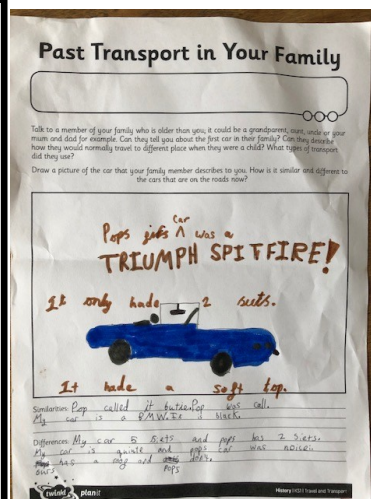 Past Transport in Your Family
Talk to a member of your family who is older than you; it could be a grandparent, aunt, uncle or your
mum and dad for example. Can they tell you about the first car in their family? Can they describe
how they would normally travel to different place when they were a child? What types of transport
did they use?
Draw a picture of the car that your family member describes to you. How is it similar and different to
the cars that are on the roads now?
Car
Pops ^ was a
TRIUMPH SPITFIRE!
It only hade 2 seets.
It hade a soft top.
Similarities: Pop called it Pop was call.
My car is a BMW. black.
Differences: My car 5 siets and pops has 2 siets.
My car is quiute and pops car was noisie.
has a and dont.
ours Pops
twinkl planit
History | KS1 | Travel and Transport